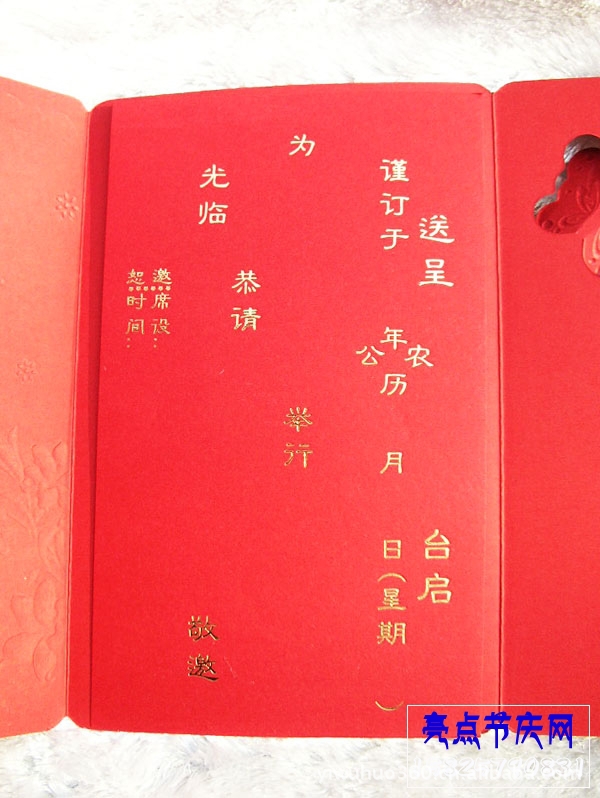 送呈 台启
谨订于 年 公农历 月 日(星期 )
为 举行
恭请
光临
敬邀
恕邀
席设:
时间:
亮点节庆网